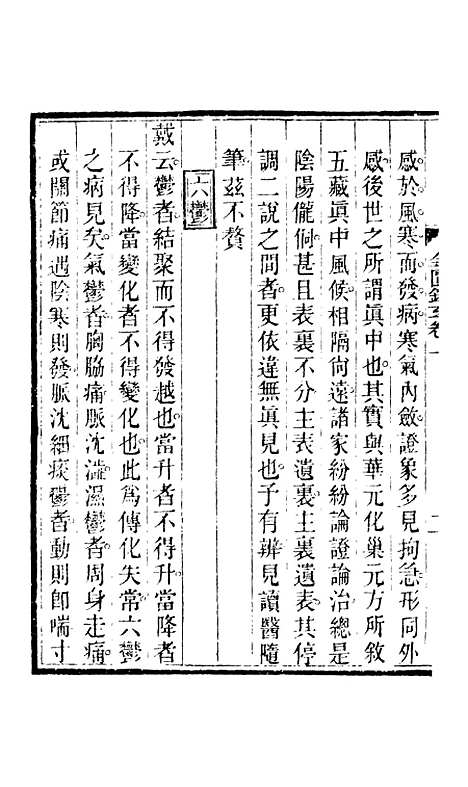 感於風寒而發病寒氣內斂證象多見拘急形同外
感後世之所謂眞中也其實與華元化巢元方所敘
五藏眞中風候相隔尙遠諸家紛紛論證論治總是
陰陽儱侗甚且表裏不分主表遺裏主裏遺表其停
調二說之間者更依違無眞見也予有辨見讀醫隨
筆玆不贅
六鬱
戴云鬱者結聚而不得發越也當升者不得升當降者
不得降當變化者不得變化也此爲傳化失常六鬱
之病見矣氣鬱者胸脇痛脈沈濇濕鬱者周身走痛
或關節痛遇陰寒則發脈沈細痰鬱者動則卽喘寸